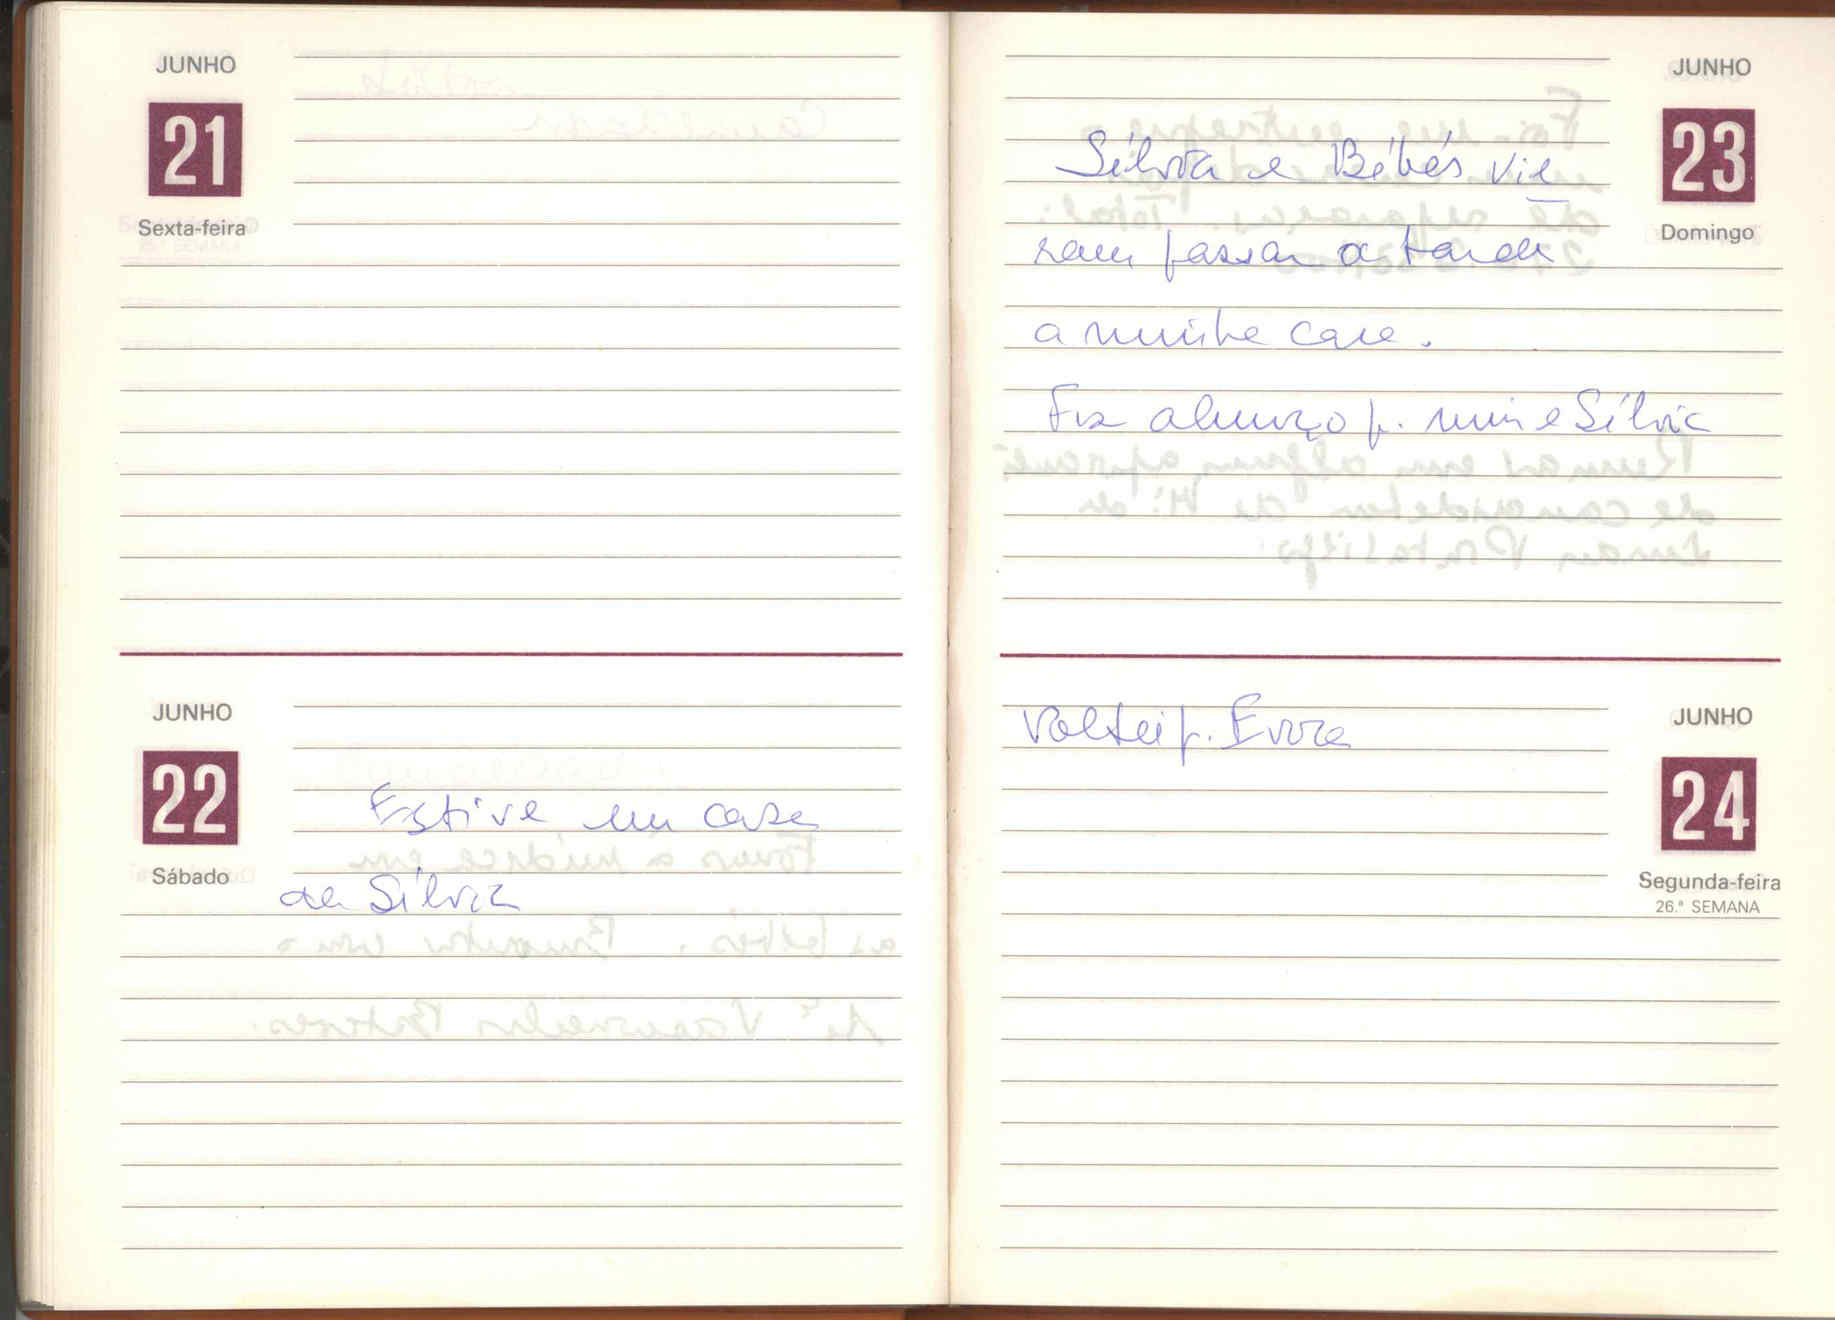 JUNHO
21
Sexta-feira
JUNHO
22
Sábado
Estive em casa
da Sílvia
JUNHO
23
Domingo
Sílvia e Bébés vie
ram passar a tarde
a minha casa.
Fiz almoço p. mim e Sílvia
JUNHO
24
Segunda-feira
26.ª SEMANA
Voltei p. Evora